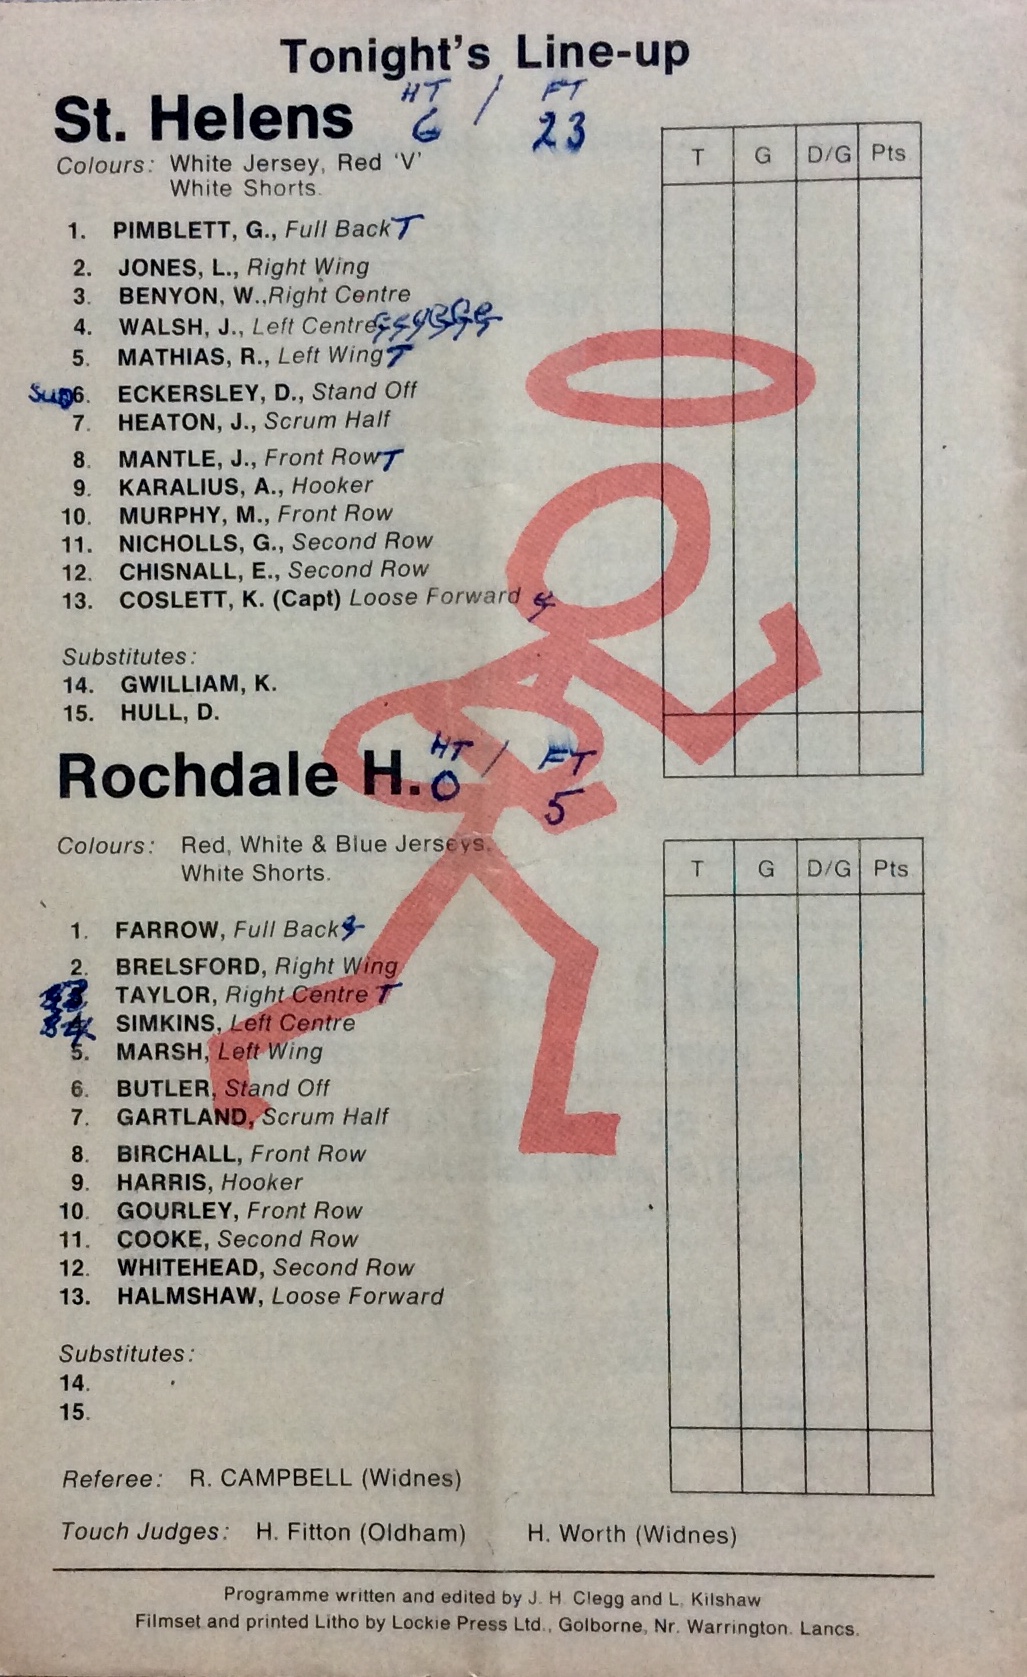 Tonight's Line-up
St. Helens HT / FT
6 23
Colours: White Jersey, Red 'V'
White Shorts.
T G D/G Pts
1. PIMBLETT, G., Full Back T
2. JONES, L., Right Wing
3. BENYON, W., Right Centre
4. WALSH, J., Left Centre
5. MATHIAS, R., Left Wing T
Sub 6. ECKERSLEY, D., Stand Off
7. HEATON, J., Scrum Half
8. MANTLE, J., Front Row T
9. KARALIUS, A., Hooker
10. MURPHY, M., Front Row
11. NICHOLLS, G., Second Row
12. CHISNALL, E., Second Row
13. COSLETT, K. (Capt) Loose Forward
Substitutes:
14. GWILLIAM, K.
15. HULL, D.
Rochdale H. HT / FT
0 5
Colours: Red, White & Blue Jerseys.
White Shorts.
T G D/G Pts
1. FARROW, Full Back
2. BRELSFORD, Right Wing
TAYLOR, Right Centre T
SIMKINS, Left Centre
5. MARSH, Left Wing
6. BUTLER, Stand Off
7. GARTLAND, Scrum Half
8. BIRCHALL, Front Row
9. HARRIS, Hooker
10. GOURLEY, Front Row
11. COOKE, Second Row
12. WHITEHEAD, Second Row
13. HALMSHAW, Loose Forward
Substitutes:
14.
15.
Referee: R. CAMPBELL (Widnes)
Touch Judges: H. Fitton (Oldham) H. Worth (Widnes)
Programme written and edited by J. H. Clegg and L. Kilshaw
Filmset and printed Litho by Lockie Press Ltd., Golborne, Nr. Warrington. Lancs.